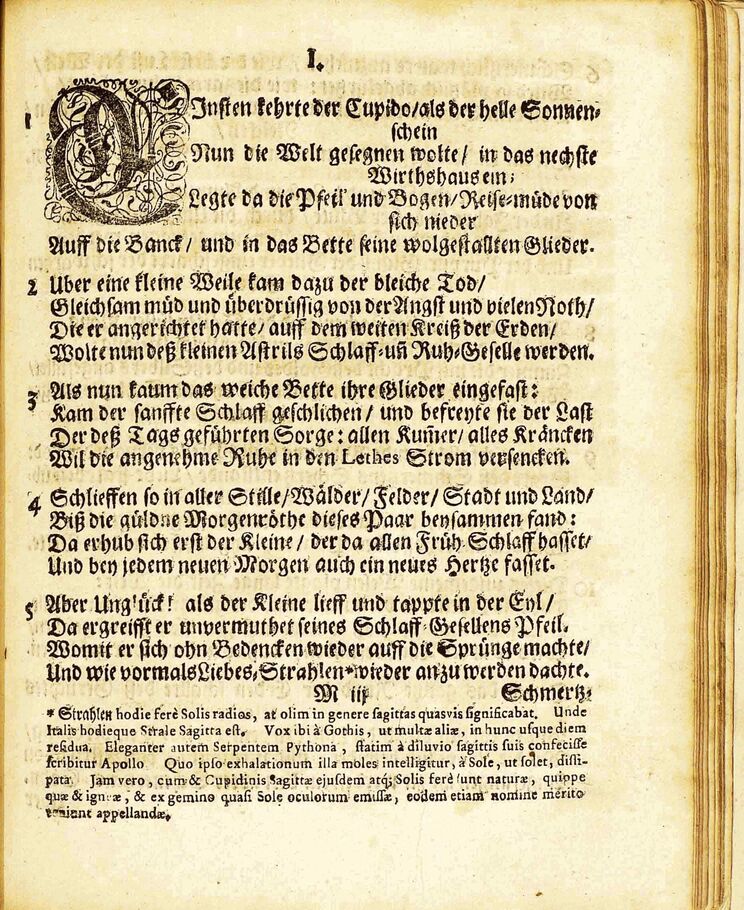 I.
1 EInsten kehrte der Cupido/ als der helle Sonnen-
schein
Nun die Welt gesegnen wolte/ in das nechste
Wirthshaus ein;
Legte da die Pfeil und Bogen/ Reise-müde von
sich nieder
Auff die Banck/ und in das Bette seine wolgestallten Glieder.
2 Uber eine kleine Weile kam dazu der bleiche Tod/
Gleichsam müd und überdrüssig von der Angst und vielen Noth/
Die er angerichtet hatte/ auff dem weiten Kreiß der Erden/
Wolte nun deß kleinen Astrils Schlaff- uñ Ruh-Geselle werden.
3 Als nun kaum das weiche Bette ihre Glieder eingefast:
Kam der sanffte Schlaff geschlichen/ und befreyte sie der Last
Der deß Tags geführten Sorge: allen Kum̃er/ alles Kräncken
Wil die angenehme Ruhe in den Lethes Strom versencken.
4 Schlieffen so in aller Stille/ Wälder/ Felder/ Stadt und Land/
Biß die güldne Morgenröthe dieses Paar beysammen fand:
Da erhub sich erst der Kleine/ der da allen Früh-Schlaff hasset/
Und bey jedem neuen Morgen auch ein neues Hertze fasset.
5 Aber Unglück! als der Kleine lieff und tappte in der Eyl/
Da ergreifft er unvermuthet seines Schlaff-Gesellens Pfeil.
Womit er sich ohn Bedencken wieder auff die Sprünge machte/
Und wie vormals Liebes-Strahlen* wieder anzuwerden dachte.
M iij Schmertz-
* Strahlen hodie ferè Solis radios, at olim in genere sagittas quasvis significabat. Unde
Italis hodieque Strale Sagitta est. Vox ibi à Gothis, ut multæ aliæ, in hunc usque diem
residua. Eleganter autem Serpentem Pythona, statim à diluvio sagittis suis confecisse
scribitur Apollo. Quo ipso exhalationum illa moles intelligitur, à Sole, ut solet, dissi-
pata. Jam vero, cum & Cupidinis Sagittæ ejusdem atq; Solis ferè sunt naturæ, quippe
quæ & igneæ, & ex gemino quasi Sole oculorum emissæ, eodem etiam nomine merito
veniunt appellandæ.